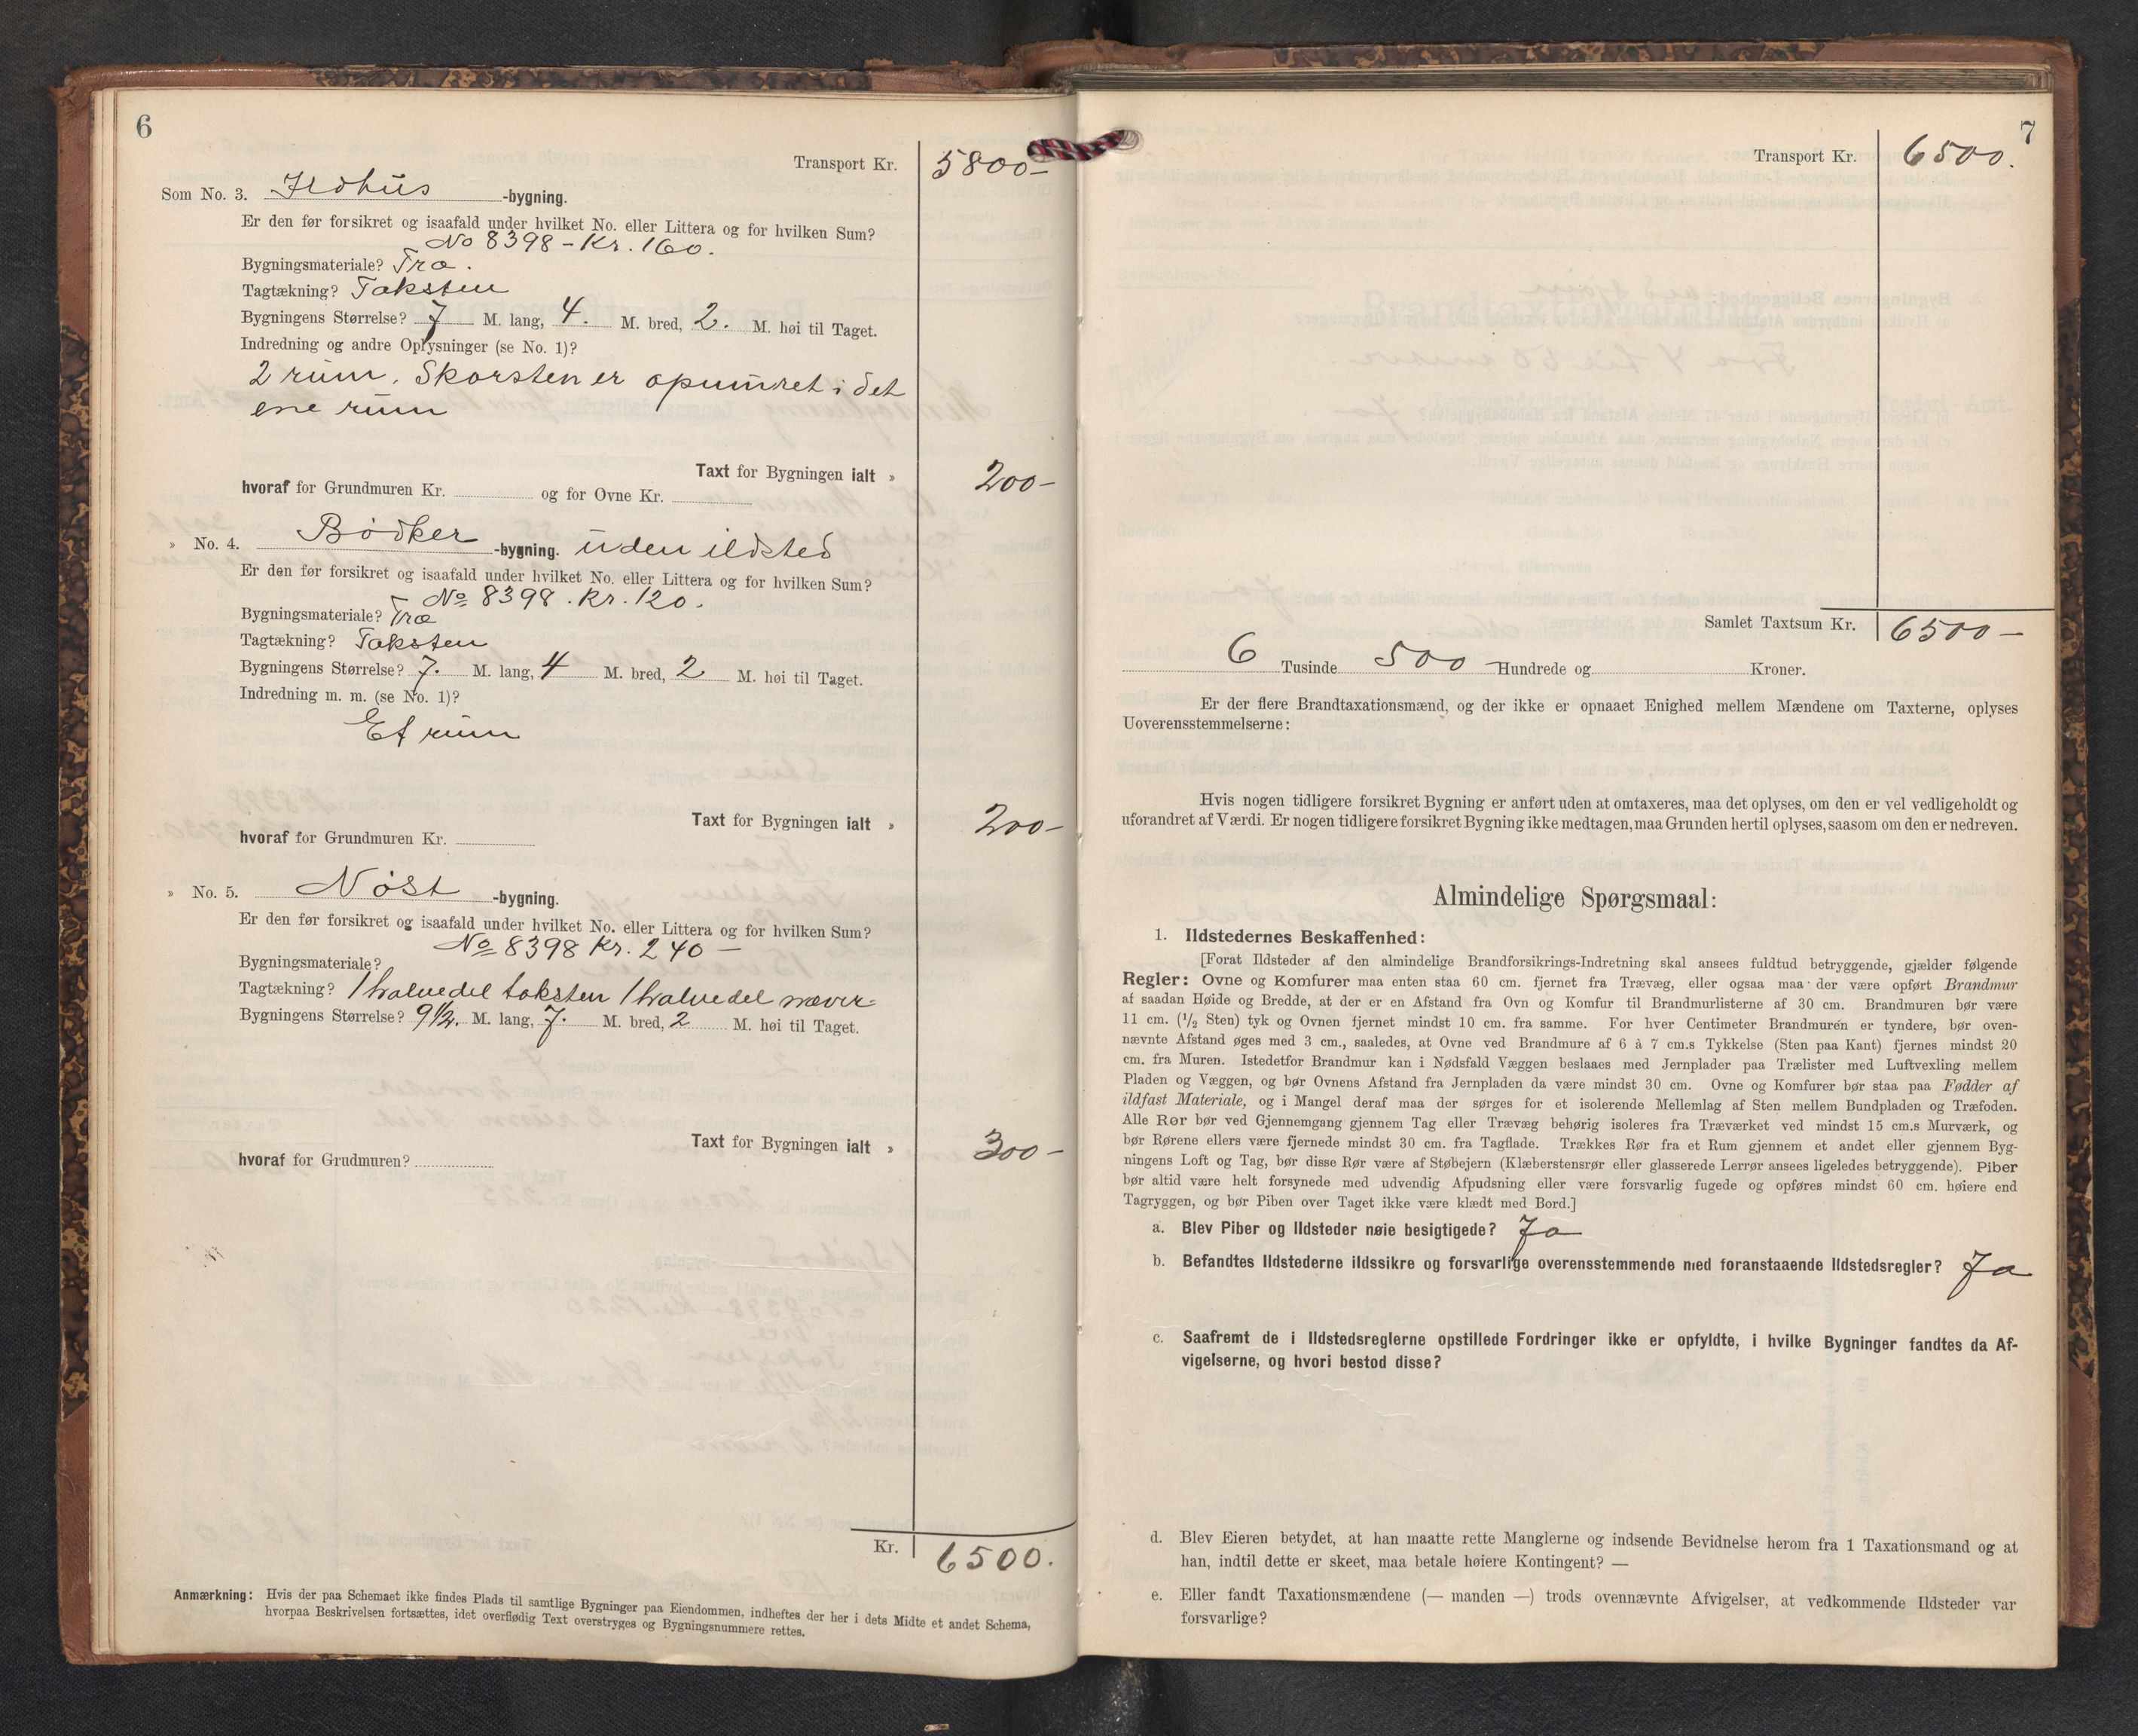 6
Transport Kr. 5800-
Som No. 3. Ildhus -bygning.
Er den før forsikret og isaafald under hvilket No. eller Littera og for hvilken Sum?
No 8398 - Kr. 160.
Bygningsmateriale? Træ.
Tagtækning? Taksten
Bygningens Størrelse? 7 M. lang, 4. M. bred, 2. M. høi til Taget.
Indredning og andre Oplysninger (se No. 1)?
2 rum. Skorsten er opmuret i det
ene rum
Taxt for Bygningen ialt » 200-
hvoraf for Grundmuren Kr. og for Ovne Kr.
» No. 4. Bødker -bygning. uden ildsted
Er den før forsikret og isaafald under hvilket No. eller Littera og for hvilken Sum?
No 8398. Kr. 120.
Bygningsmateriale? Træ
Tagtækning? Taksten
Bygningens Størrelse? 7. M. lang, 4 M. bred, 2 M. høi til Taget.
Indredning m. m. (se No. 1)?
Et rum
Taxt for Bygningen ialt » 200-
hvoraf for Grundmuren Kr.
» No. 5. Nøst -bygning.
Er den før forsikret og isaafald under hvilket No. eller Littera og for hvilken Sum?
No 8398 Kr. 240 -
Bygningsmateriale?
Tagtækning? 1 halvedel taksten 1 halvedel næver
Bygningens Størrelse? 9 1/2. M. lang, 7. M. bred, 2 M. høi til Taget.
Taxt for Bygningen ialt » 300-
hvoraf for Grudmuren?
Kr. 6500.
Anmærkning: Hvis der paa Schemaet ikke findes Plads til samtlige Bygninger paa Eiendommen, indheftes der her i dets Midte et andet Schema,
hvorpaa Beskrivelsen fortsættes, idet overflødig Text overstryges og Bygningsnummere rettes.
7
Transport Kr. 6500.
Samlet Taxtsum Kr. 6500-
6 Tusinde 500 Hundrede og Kroner.
Er der flere Brandtaxationsmænd, og der ikke er opnaaet Enighed mellem Mændene om Taxterne, oplyses
Uoverensstemmelserne:
Hvis nogen tidligere forsikret Bygning er anført uden at omtaxeres, maa det oplyses, om den er vel vedligeholdt og
uforandret af Værdi. Er nogen tidligere forsikret Bygning ikke medtagen, maa Grunden hertil oplyses, saasom om den er nedreven.
Almindelige Spørgsmaal:
1. Ildstedernes Beskaffenhed:
[Forat Ildsteder af den almindelige Brandforsikrings-Indretning skal ansees fuldtud betryggende, gjælder følgende
Regler: Ovne og Komfurer maa enten staa 60 cm. fjernet fra Trævæg, eller ogsaa maa der være opført Brandmur
af saadan Høide og Bredde, at der er en Afstand fra Ovn og Komfur til Brandmurlisterne af 30 cm. Brandmuren bør være
11 cm. (1/2 Sten) tyk og Ovnen fjernet mindst 10 cm. fra samme. For hver Centimeter Brandmuren er tyndere, bør oven-
nævnte Afstand øges med 3 cm., saaledes, at Ovne ved Brandmure af 6 à 7 cm.s Tykkelse (Sten paa Kant) fjernes mindst 20
cm. fra Muren. Istedetfor Brandmur kan i Nødsfald Væggen beslaaes med Jernplader paa Trælister med Luftvexling mellem
Pladen og Væggen, og bør Ovnens Afstand fra Jernpladen da være mindst 30 cm. Ovne og Komfurer bør staa paa Fødder af
ildfast Materiale, og i Mangel deraf maa der sørges for et isolerende Mellemlag af Sten mellem Bundpladen og Træfoden.
Alle Rør bør ved Gjennemgang gjennem Tag eller Trævæg behørig isoleres fra Træværket ved mindst 15 cm.s Murværk, og
bør Rørene ellers være fjernede mindst 30 cm. fra Tagflade. Trækkes Rør fra et Rum gjennem et andet eller gjennem Byg-
ningens Loft og Tag, bør disse Rør være af Støbejern (Klæberstensrør eller glasserede Lerrør ansees ligeledes betryggende). Piber
bør altid være helt forsynede med udvendig Afpudsning eller være forsvarlig fugede og opføres mindst 60 cm. høiere end
Tagryggen, og bør Piben over Taget ikke være klædt med Bord.]
a. Blev Piber og Ildsteder nøie besigtigede? Ja
b. Befandtes Ildstederne ildssikre og forsvarlige overensstemmende med foranstaaende Ildstedsregler? Ja
c. Saafremt de i Ildstedsreglerne opstillede Fordringer ikke er opfyldte, i hvilke Bygninger fandtes da Af-
vigelserne, og hvori bestod disse?
d. Blev Eieren betydet, at han maatte rette Manglerne og indsende Bevidnelse herom fra 1 Taxationsmand og at
han, indtil dette er skeet, maa betale høiere Kontingent? —
e. Eller fandt Taxationsmændene (— manden —) trods ovennævnte Afvigelser, at vedkommende Ildsteder var
forsvarlige?